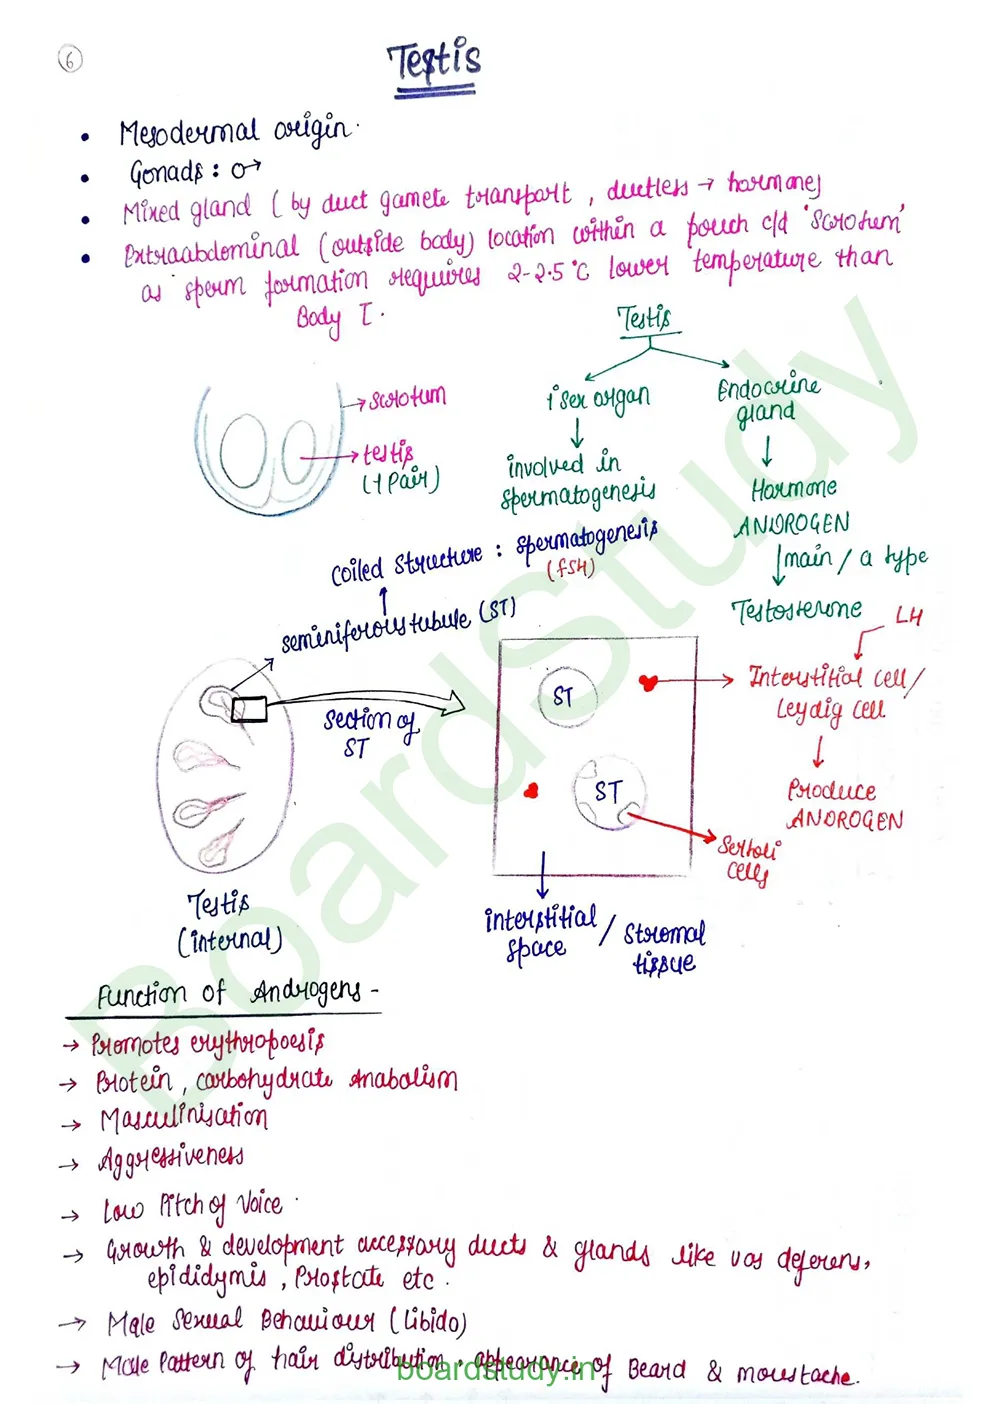 6
Testis
• Mesodermal origin.
• Gonads : ♂
• Mixed gland ( by duct gamete transport , ductless → hormone)
• Extraabdominal (outside body) location within a pouch c/d 'Scrotum'
as sperm formation requires 2-2.5°C lower temperature than
Body T.
Testis
1° sex organ
Endocrine
gland
→ scrotum
→ testis
(1 pair)
involved in
spermatogenesis
Hormone
ANDROGEN
main / a type
Testosterone
Coiled structure : spermatogenesis
(FSH)
seminiferous tubule (ST)
LH
Interstitial cell /
Leydig cell
Produce
ANDROGEN
ST
ST
Section of
ST
Sertoli
cells
Testis
(internal)
interstitial
space / stromal
tissue
Function of Androgens -
→ Promotes erythropoesis
→ Protein , carbohydrate anabolism
→ Masculinisation
→ Aggressiveness
→ Low Pitch of Voice .
→ Growth & development accessary ducts & glands like vas deferens,
epididymis , Prostate etc .
→ Male Sexual Behaviour (libido)
→ Male Pattern of hair distribution , appearance of Beard & moustache.
BoardStudy
boardstudy.in